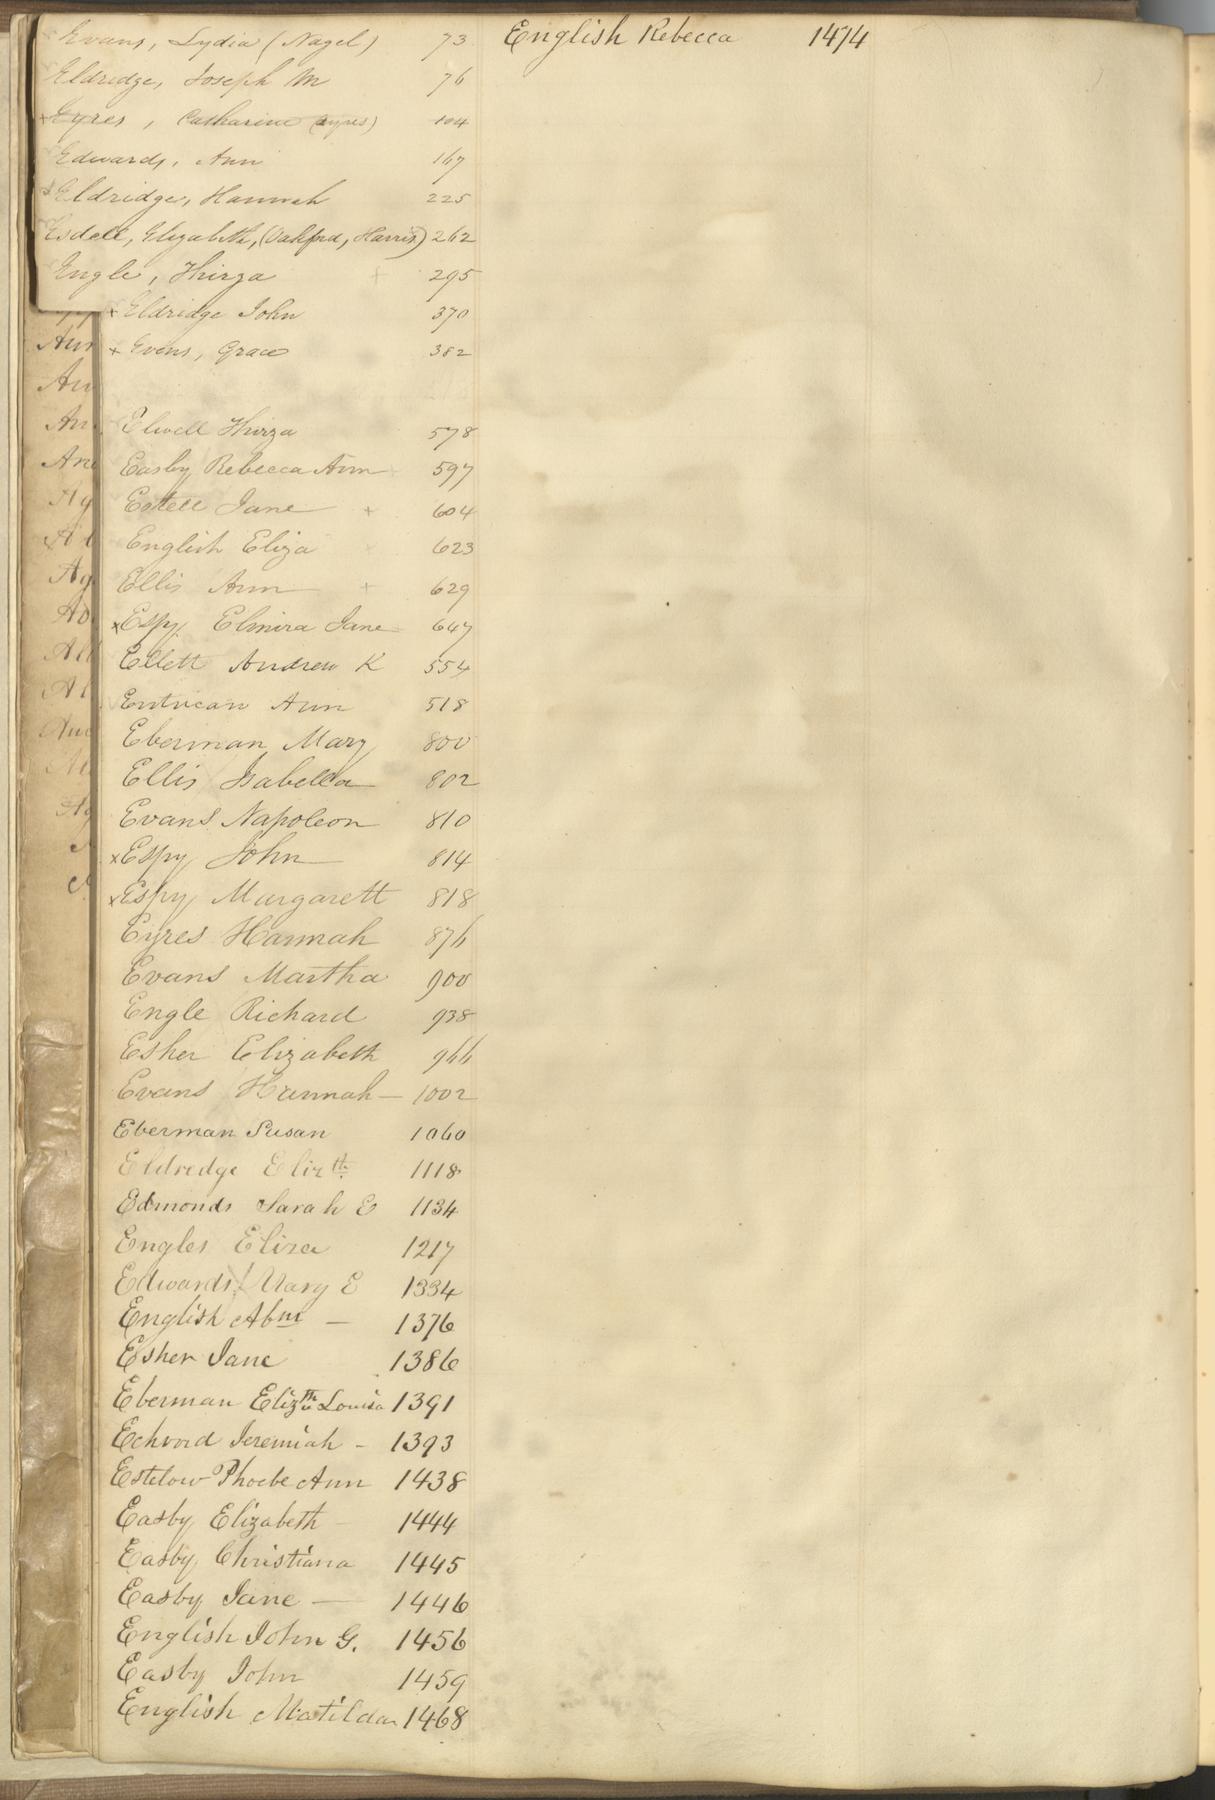 Evans, Lydia (Nagel) 73
Eldredge, Joseph M 76
+ Eyres, Catharine (Ayres) 104
Edwards, Ann 167
Eldridge, Hannah 225
Esdell, Elizabeth, (Oakford, Harris) 262
Engle, Thirza + 295
+ Eldridge John 370
+ Evens, Grace 382
Elwell Thirza 578
Easby Rebecca Ann 597
Estell Jane + 604
English Eliza 623
Ellis Ann + 629
x Espy Elmira Jane 647
Ellett Andrew K 554
Entrican Ann 518
Eberman Mary 800
Ellis Isabella 802
Evans Napoleon 810
x Espy John 814
x Espy Margarett 818
Eyres Hannah 876
Evans Martha 900
Engle Richard 938
Esher Elizabeth 966
Evans Hannah — 1002
Eberman Susan 1060
Eldredge Elizth 1118
Edmonds Sarah E 1134
Engles Eliza 1217
Edwards Mary E 1334
English Abm — 1376
Esher Jane 1386
Eberman Elizth Louisa 1391
Jeremiah - 1393
Estelow Phoebe Ann 1438
Easby Elizabeth - 1444
Easby Christiana 1445
Easby Jane — 1446
English John G. 1456
Easby John 1459
English Matilda 1468
English Rebecca 1474